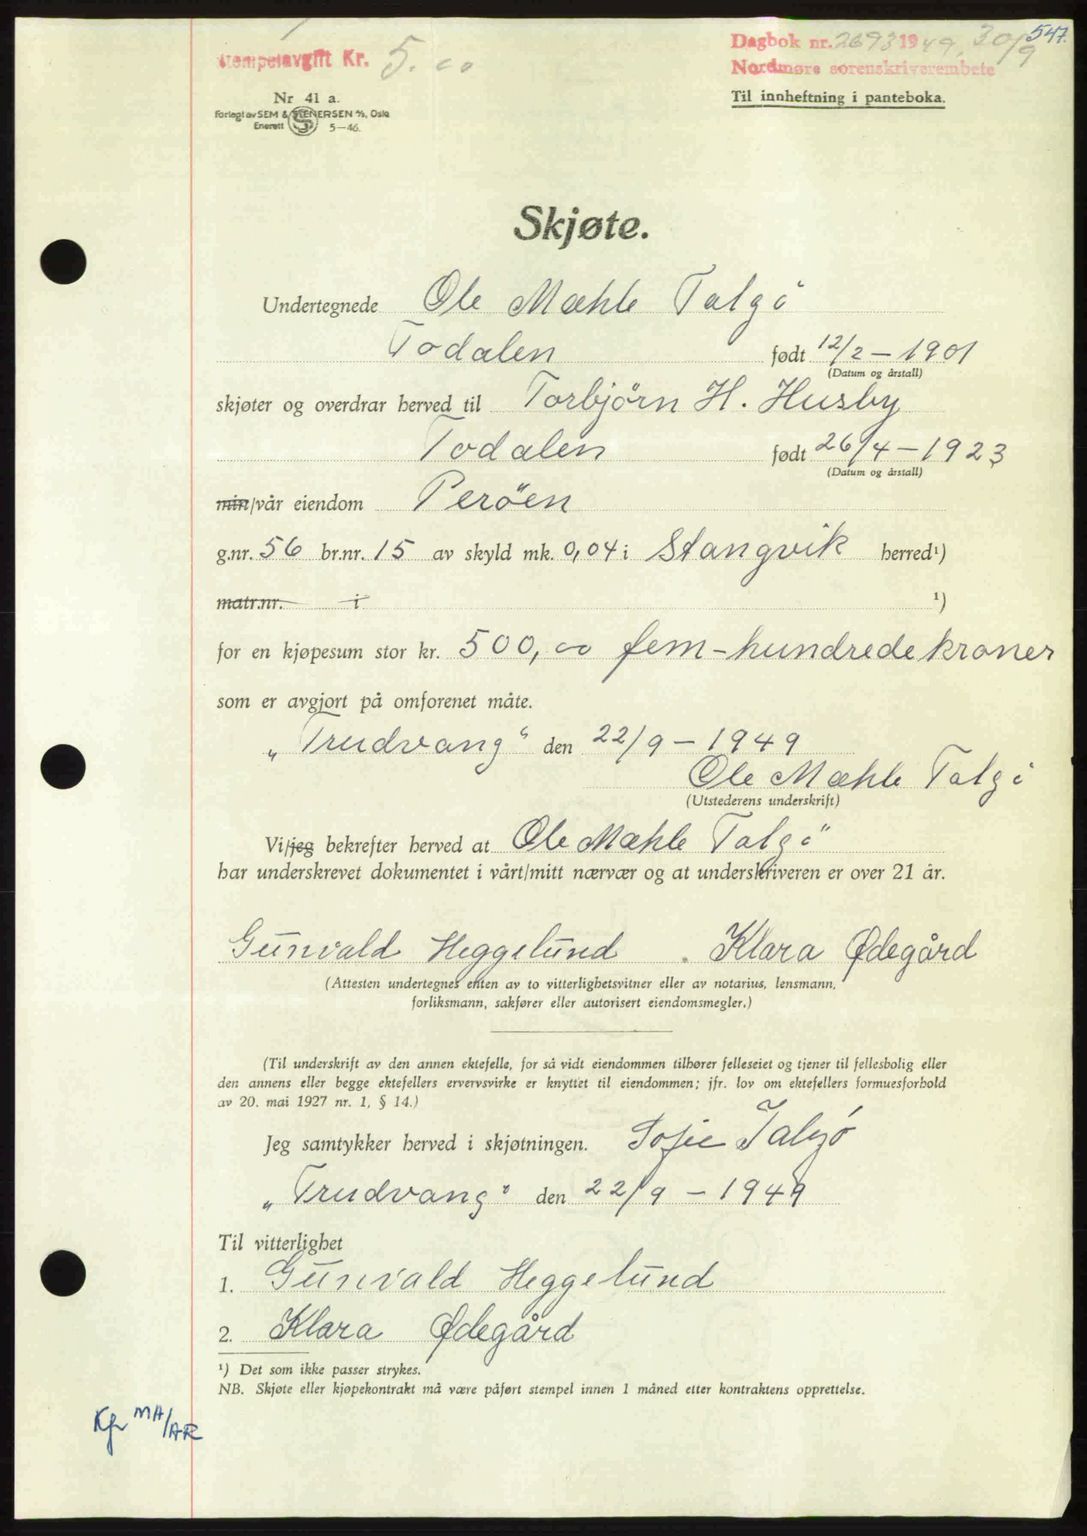 547.
Stempelavgift Kr. 5.00
Dagbok nr. 2693 1949, 30/9
Nordmøre sorenskriverembete
Til innheftning i panteboka.
Nr 41 a.
Forlagt av SEM & STENERSEN A/S, Oslo
Enerett 5—46.
Skjøte.
Undertegnede Ole Mæhle Talgö
Todalen født 12/2 – 1901
(Datum og årstall)
skjøter og overdrar herved til Torbjörn H. Husby
Todalen født 26/4 – 1923
(Datum og årstall)
min/vår eiendom Peröen
g.nr. 56 br.nr. 15 av skyld mk. 0,04 i Stangvik herred¹)
matr.nr. i ¹)
for en kjøpesum stor kr. 500,00 fem-hundrede kroner
som er avgjort på omforenet måte.
„Trudvang“ den 22/9 – 1949
Ole Mæhle Talgö
(Utstederens underskrift)
Vi/jeg bekrefter herved at Ole Mæhle Talgö
har underskrevet dokumentet i vårt/mitt nærvær og at underskriveren er over 21 år.
Gunvald Heggelund . Klara Ødegård
(Attesten undertegnes enten av to vitterlighetsvitner eller av notarius, lensmann,
forliksmann, sakfører eller autorisert eiendomsmegler.)
(Til underskrift av den annen ektefelle, for så vidt eiendommen tilhører felleseiet og tjener til fellesbolig eller
den annens eller begge ektefellers ervervsvirke er knyttet til eiendommen; jfr. lov om ektefellers formuesforhold
av 20. mai 1927 nr. 1, § 14.)
Jeg samtykker herved i skjøtningen. Sofie Talgó
„Trudvang“ den 22/9 – 1949
Til vitterlighet
1. Gunvald Heggelund
2. Klara Ødegård
¹) Det som ikke passer strykes.
NB. Skjøte eller kjøpekontrakt må være påført stempel innen 1 måned etter kontraktens opprettelse.
MA/AR